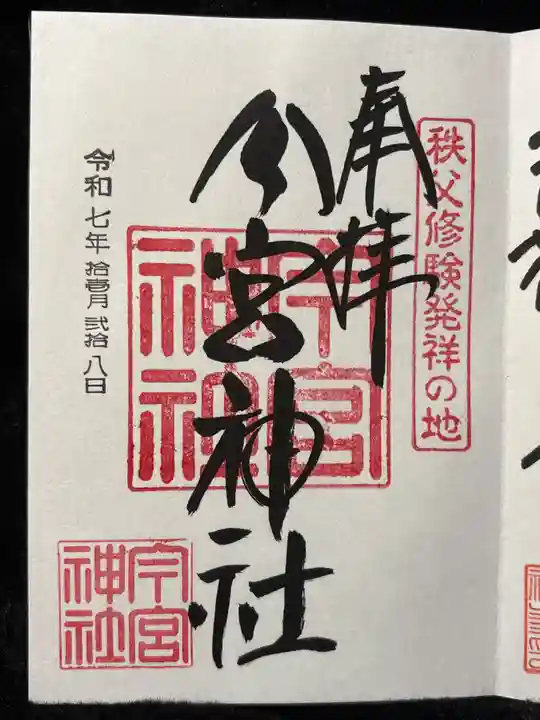 秩父修験発祥の地
奉拝
今宮神社
今宮神社
令和七年拾壱月弐拾八日
今宮神社